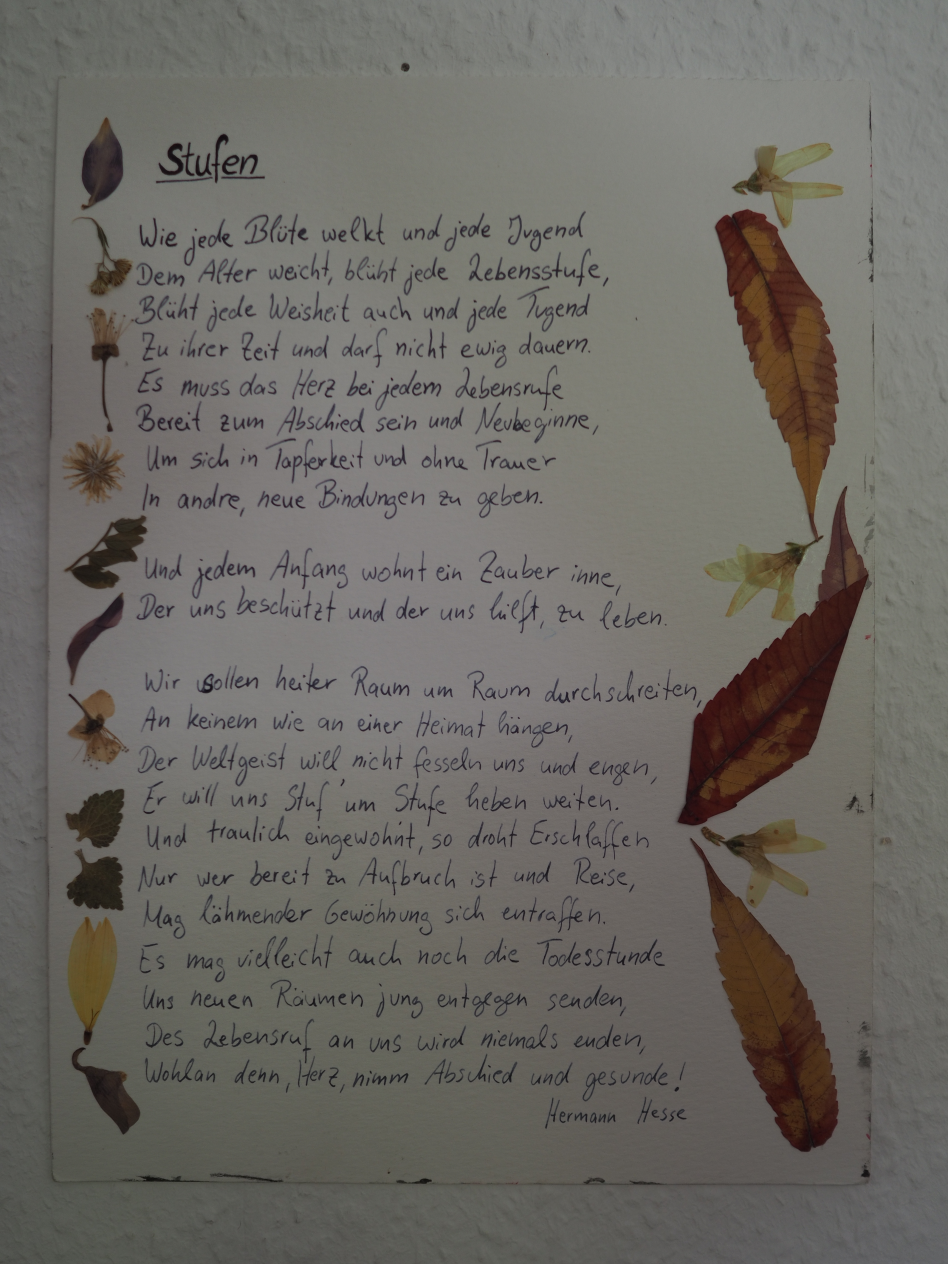 Stufen
Wie jede Blüte welkt und jede Jugend
Dem Alter weicht, blüht jede Lebensstufe,
Blüht jede Weisheit auch und jede Tugend
Zu ihrer Zeit und darf nicht ewig dauern.
Es muss das Herz bei jedem Lebensrufe
Bereit zum Abschied sein und Neubeginne,
Um sich in Tapferkeit und ohne Trauer
In andre, neue Bindungen zu geben.
Und jedem Anfang wohnt ein Zauber inne,
Der uns beschützt und der uns hilft, zu leben.
Wir sollen heiter Raum um Raum durchschreiten,
An keinem wie an einer Heimat hängen,
Der Weltgeist will nicht fesseln uns und engen,
Er will uns Stuf' um Stufe heben weiten.
Und traulich eingewohnt, so droht Erschlaffen
Nur wer bereit zu Aufbruch ist und Reise,
Mag lähmender Gewöhnung sich entraffen.
Es mag vielleicht auch noch die Todesstunde
Uns neuen Räumen jung entgegen senden,
Des Lebensruf an uns wird niemals enden,
Wohlan denn, Herz, nimm Abschied und gesunde!
Hermann Hesse